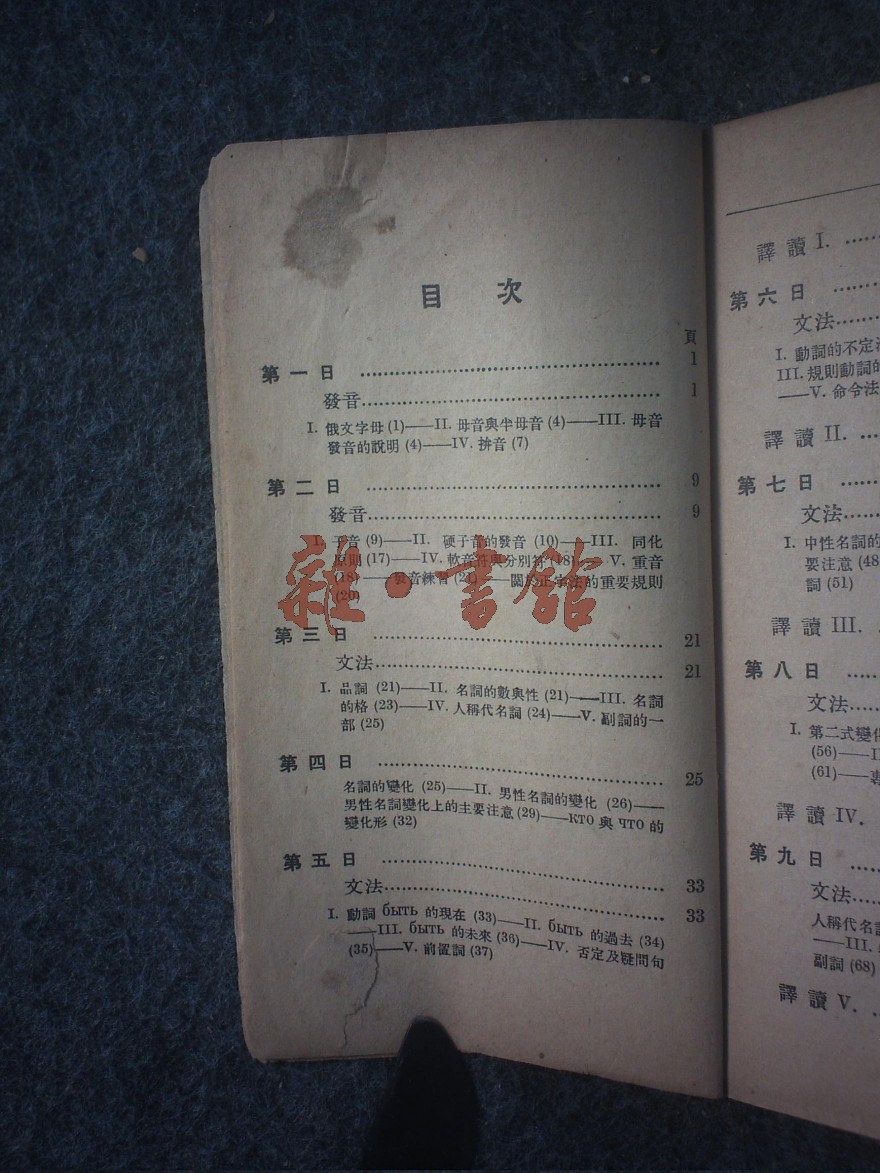 目 次
頁
第 一 日 ………………………………… 1
發音………………………………… 1
I. 俄文字母 (1)——II. 母音與半母音 (4)——III. 母音
發音的說明 (4)——IV. 拚音 (7)
第 二 日 ………………………………… 9
發音………………………………… 9
I. 子音 (9)——II. 硬子音的發音 (10)——III. 同化
原則 (17)——IV. 軟音符與分別符 (18)——V. 重音
(18)——發音練習 (21)——關於正字法的重要規則
(20)
雜·書館
第 三 日 ………………………………… 21
文法………………………………… 21
I. 品詞 (21)——II. 名詞的數與性 (21)——III. 名詞
的格 (23)——IV. 人稱代名詞 (24)——V. 副詞的一
部 (25)
第 四 日 ………………………………… 25
名詞的變化 (25)——II. 男性名詞的變化 (26)——
男性名詞變化上的主要注意 (29)——КТО 與 ЧТО 的
變化形 (32)
第 五 日 ………………………………… 33
文法………………………………… 33
I. 動詞 быть 的現在 (33)——II. быть 的過去 (34)
——III. быть 的未來 (36)——IV. 否定及疑問句
(35)——V. 前置詞 (37)
譯 讀 I. ……
第 六 日 ……
文法……
I. 動詞的不定
III. 規則動詞的
——V. 命令法
譯 讀 II. …
第 七 日 ……
文法……
I. 中性名詞的
要注意 (48
詞 (51)
譯 讀 III. .
第 八 日 ……
文法……
I. 第二式變化
(56)——I
(61)——
譯 讀 IV.
第 九 日 ……
文法……
人稱代名詞
——III.
副詞 (68)
譯 讀 V. …